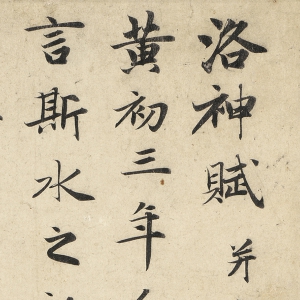 洛神賦 并
黄初三年
言斯水之